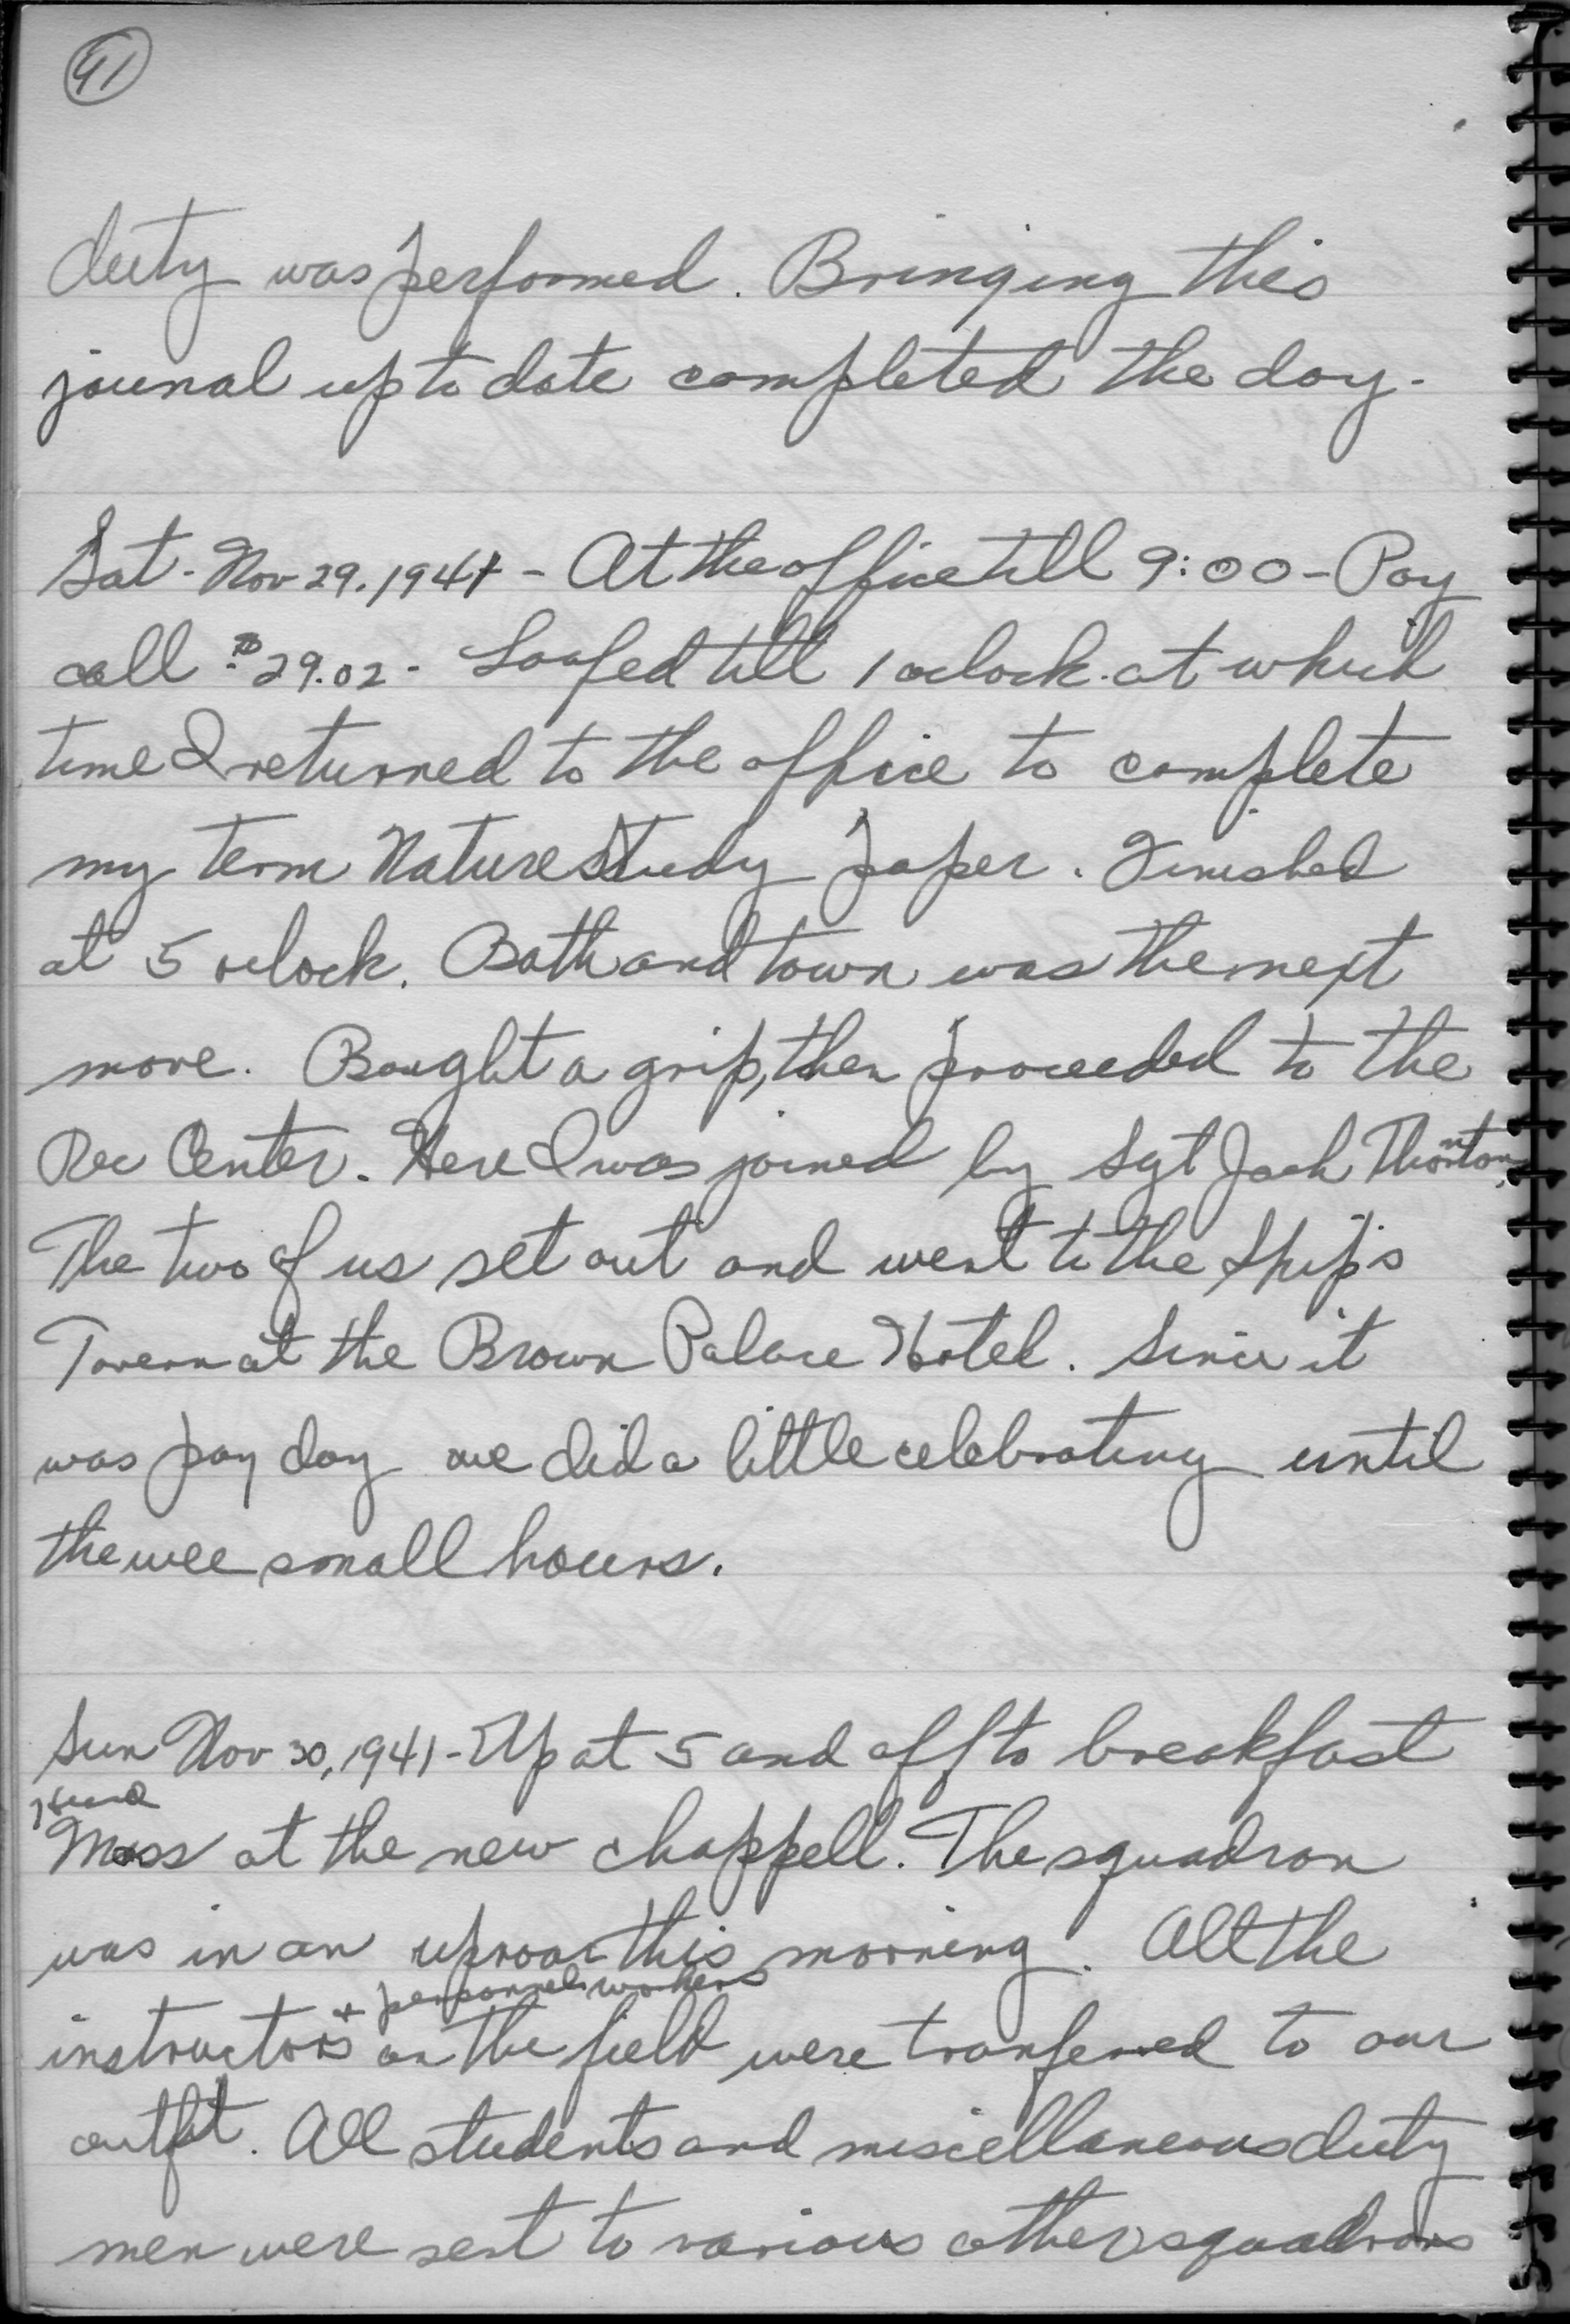 41
duty was performed. Bringing this
jounal up to date completed the day.
Sat - Nov 29. 1941 - At the office till 9:00 - Pay
call $29.02 - Loafed till 1 oclock at which
time I returned to the office to complete
my term Nature Study paper. Finished
at 5 oclock. Bath and town was the next
move. Bought a grip, then proceeded to the
Rec Center. Here I was joined by Sgt Jack Thornton,
The two of us set out and went to the Ship's
Tavern at the Brown Palace Hotel. Since it
was pay day we did a little celebrating until
the wee small hours.
Sun Nov 30, 1941 - Up at 5 and off to breakfast
Mass at the new chappell. The squadron
was in an uproar this morning. All the
+ personnel workers
instructors on the field were tranferred to our
outfit. All students and miscellaneous duty
men were sent to various other squadrons